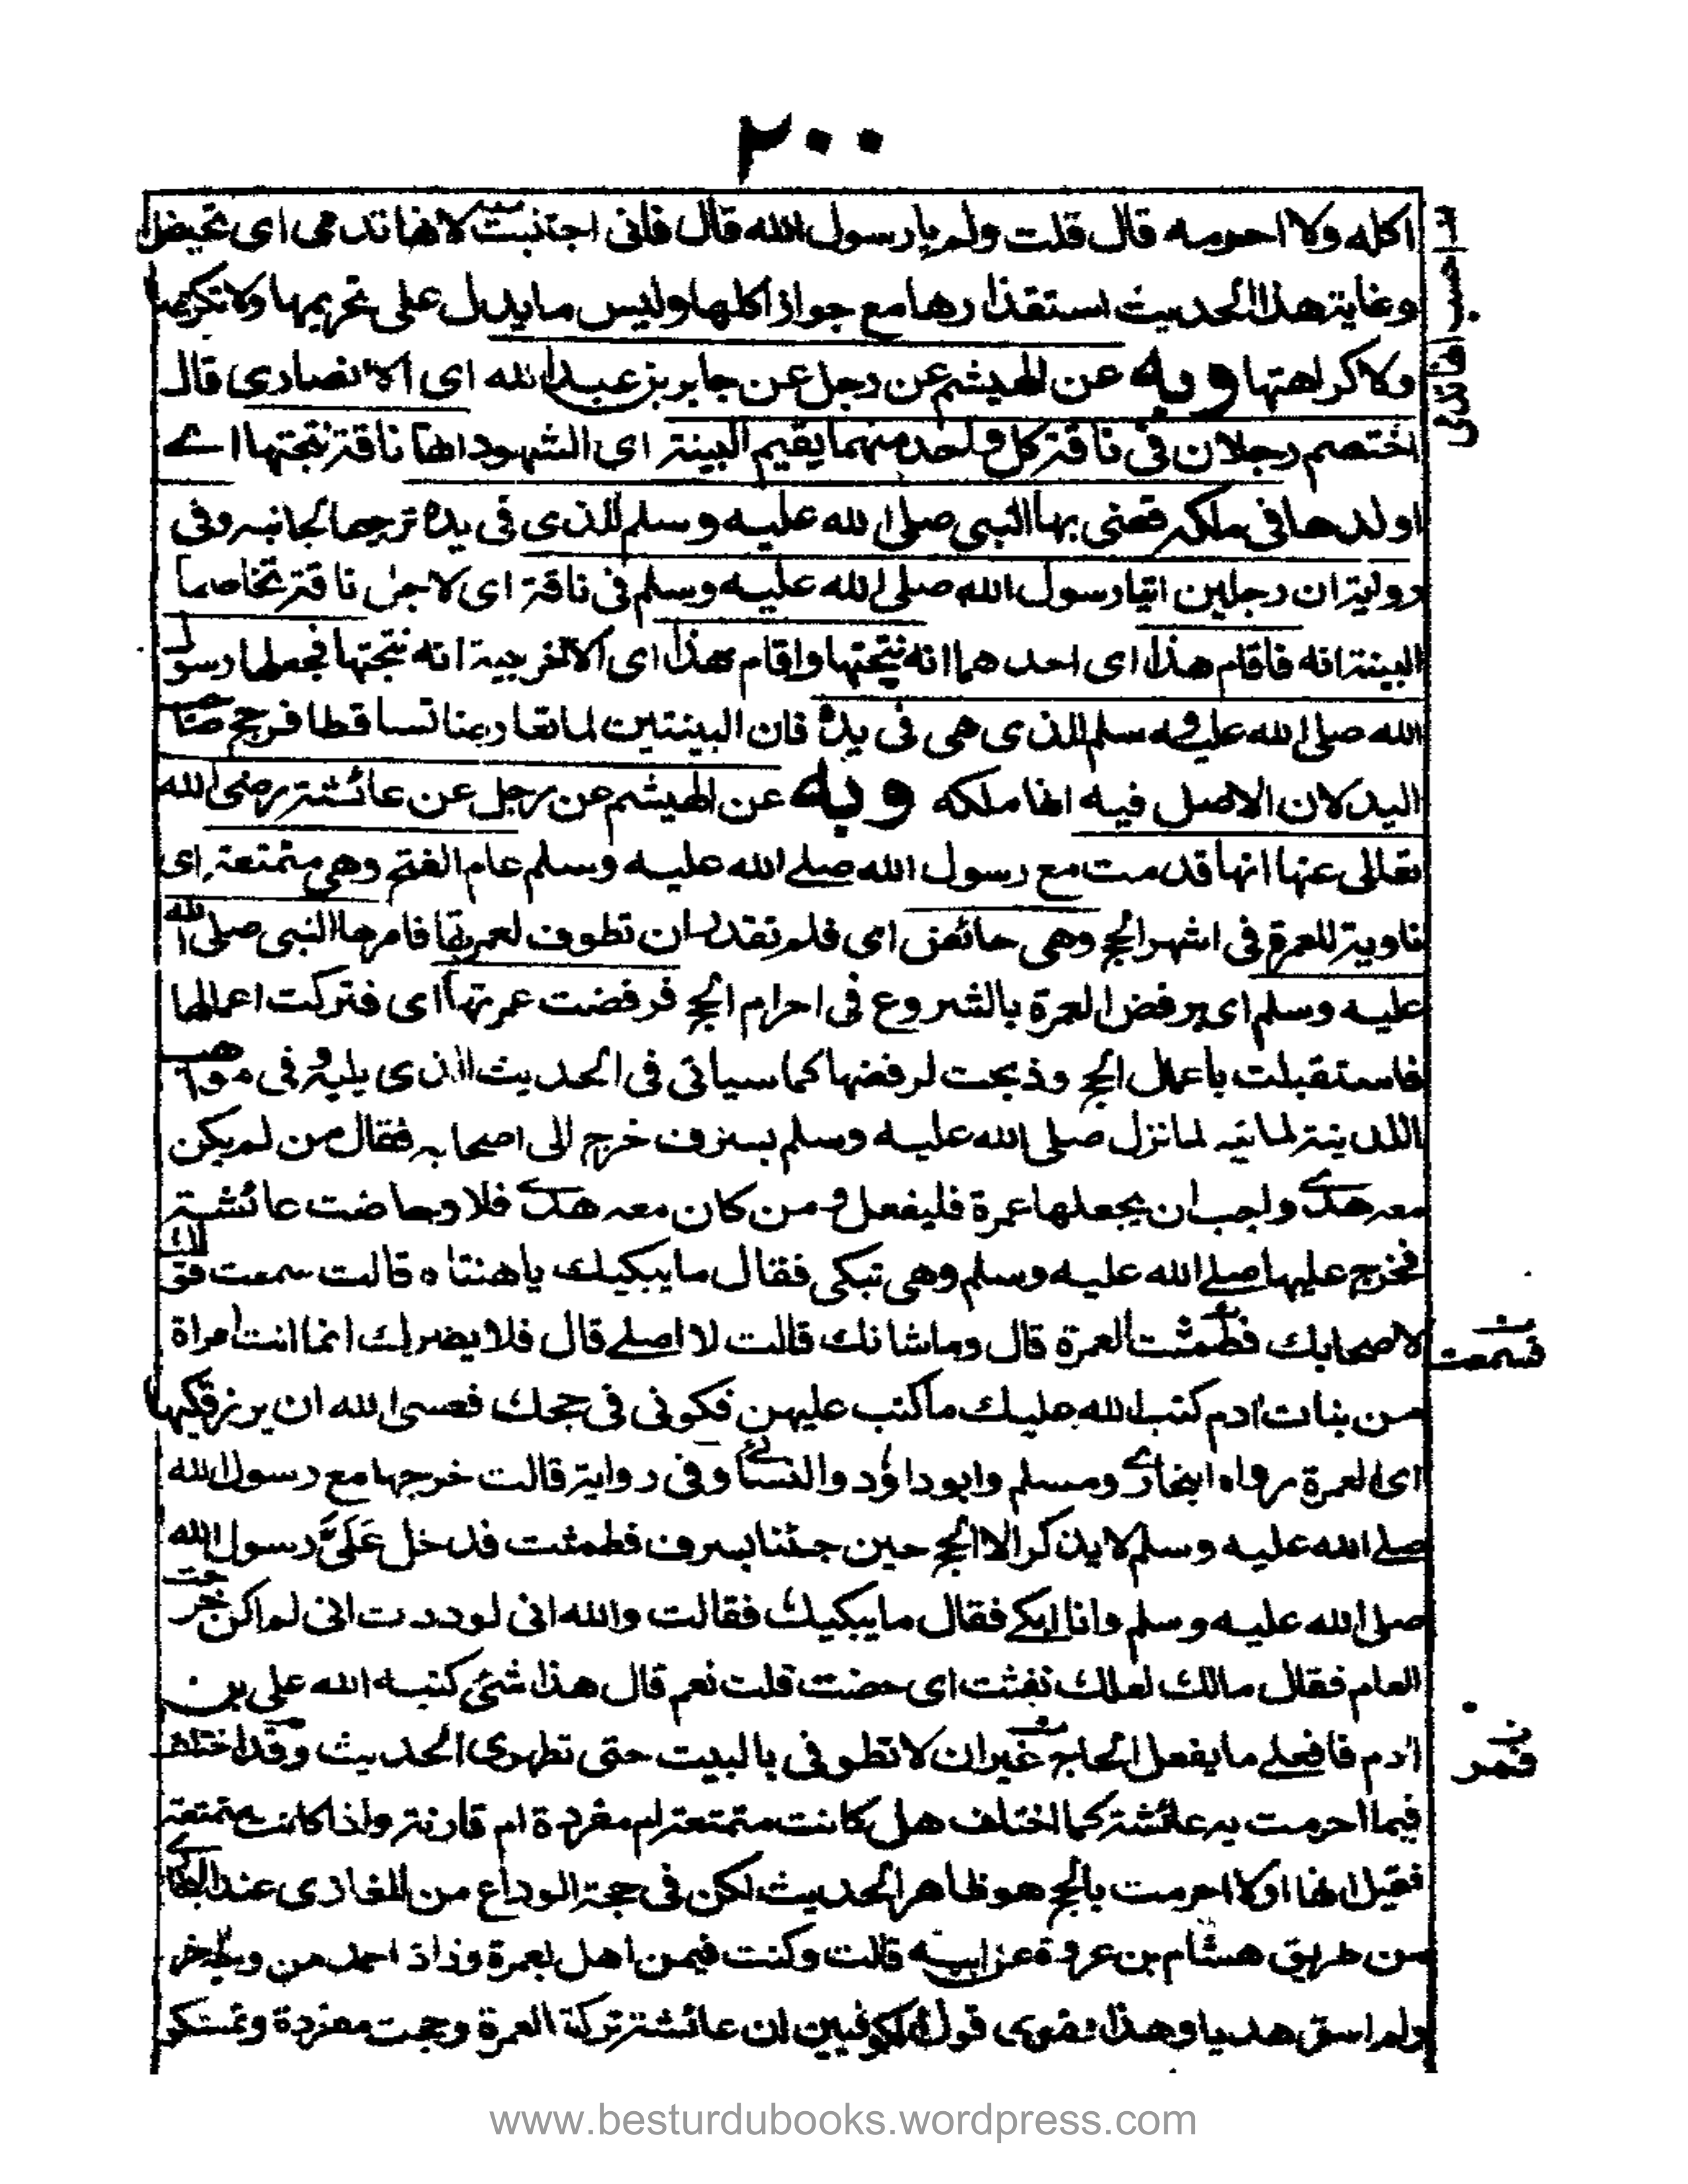 ٢٠٠
اكله ولا احرمه قال قلت ولم يا رسول الله قال فانى اجتنبت لانها تدمى اى تحيض
وغاية هذا الحديث استقذارها مع جواز اكلها وليس ما يدل على تحريمها ولا
ولا كراهتها وبه عن الهيثم عن رجل عن جابر بن عبد الله اى الانصارى قال
اختصم رجلان فى ناقة كل واحد منهما يقيم البينة اى الشهود انها ناقة نتجتها اے
اولدها فى ملكه فقضى بها النبى صلى الله عليه وسلم للذى فى يده ترجيحا لجانبه وفى
رواية ان رجلين اتيا رسول الله صلى الله عليه وسلم فى ناقة اى لاجل ناقة تخاصما
البينة انه فاقام هذا اى احدهما انه نتجتها واقام هذا اى الآخر بينة انه نتجتها فجعلها رسول
الله صلى الله عليه وسلم للذى هى فى يده فان البينتين لما تعارضتا تساقطا فرجح صاحب
اليد لان الاصل فيه انها ملكه وبه عن الهيثم عن رجل عن عائشة رضى الله
تعالى عنها انها قدمت مع رسول الله صلے الله عليه وسلم عام الفتح وهى متمتعة اى
ناوية للعمرة فى اشهر الحج وهى حائض اى فلم تقدر ان تطوف لعمرتها فامرها النبى صلى الله
عليه وسلم اى برفض العمرة بالشروع فى احرام الحج فرفضت عمرتها اى فتركت اعمالها
فاستقبلت باعمال الحج وذبحت لرفضها كما سياتى فى الحديث الذى يليه وفى
اللدينة لمانيه لما نزل صلى الله عليه وسلم بسرف خرج الى اصحابه فقال من لم يكن
معه هدى واجب ان يجعلها عمرة فليفعل ومن كان معه هدى فلا وحاضت عائشة
فخرج عليها صلے الله عليه وسلم وهى تبكى فقال ما يبكيك يا هنتاه قالت سمعت قولك
لاصحابك فطمثت العمرة قال وما شانك قالت لا اصلے قال فلا يضرك انما انت امراة
فسمعت
من بنات ادم كتب الله عليك ما كتب عليهن فكونى فى حجك فعسى الله ان يرزقكيها
اى العمرة رواه البخارى ومسلم وابوداؤد والنسائى وفى رواية قالت خرجنا مع رسول الله
صلے الله عليه وسلم لا يذكر الا الحج حين جئنا بسرف فطمثت فدخل عَلَىَّ رسول الله
صلى الله عليه وسلم وانا ابكے فقال ما يبكيك فقالت والله انى لوددت انى لم اكن خرجت
العام فقال مالك لعلك نفثت اى حضت قلت نعم قال هذا شئ كتبه الله على بن
ادم فافعلے ما يفعل الحاج غير ان لا تطوفى بالبيت حتى تطهرى الحديث وقد اختلف
فيما احرمت به عائشة كما اختلف هل كانت متمتعة ام مفردة ام قارنة واذا كانت متمتعة
فقيل انها اولا احرمت بالحج هو ظاهر الحديث لكن فى حجة الوداع من المغازى عند البخارى
من طريق هشام بن عروة عن ابيه قالت وكنت فيمن اهل بعمرة وزاد احمد من وجه اخر
ولم اسق هديا وهذا يقوى قول الكوفيين ان عائشة تركت العمرة وحجت مفردة وتمسكو
www.besturdubooks.wordpress.com